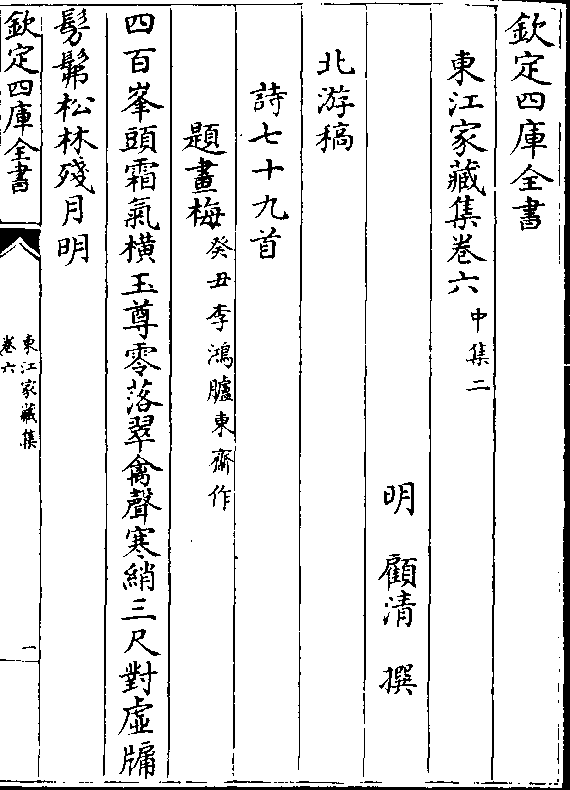 欽定四庫全書
東江家藏集卷六 中集二
明 顧清 撰
北游稿
詩七十九首
題畫梅 癸丑李鴻臚東齋作
四百峯頭霜氣橫玉尊零落翠禽聲寒綃三尺對虛牖
髣髴松林殘月明
欽定四庫全書
東江家藏集
卷六
一